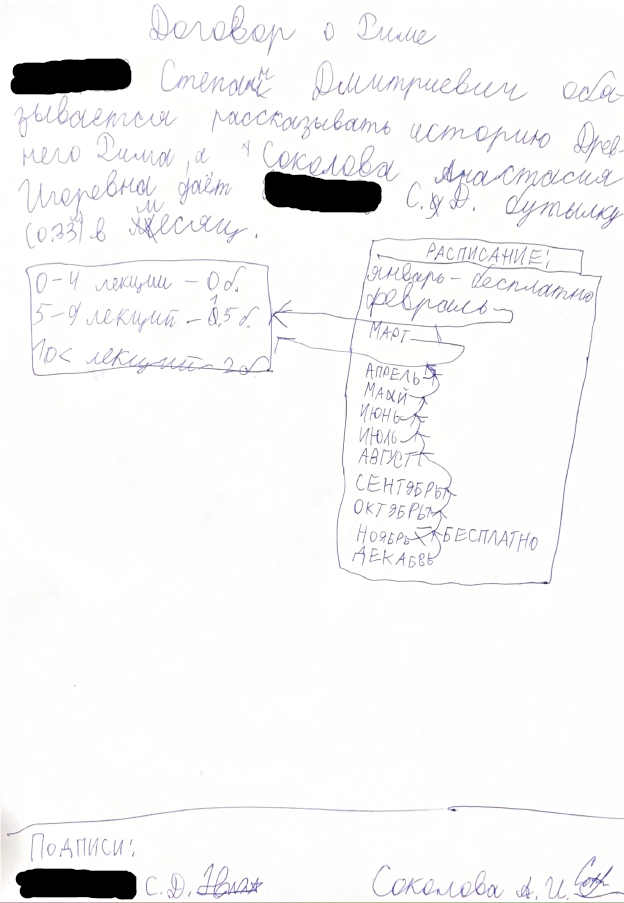 Договор о Риме
Степан Дмитриевич обя-
зывается рассказывать историю Древ-
него Рима, а Соколова Анастасия
Игоревна даёт С.Д. бутылку
(0,33) в месяц.
0-4 лекции - 0 б.
5-9 лекций - 1,5 б.
10< лекций - 2 б
РАСПИСАНИЕ:
январь - бесплатно
февраль
МАРТ
АПРЕЛЬ
МАЙ
ИЮНЬ
ИЮЛЬ
АВГУСТ
СЕНТЯБРЬ
ОКТЯБРЬ
НОЯБРЬ - БЕСПЛАТНО
ДЕКАБРЬ
Подписи:
С.Д.
Соколова А.И.